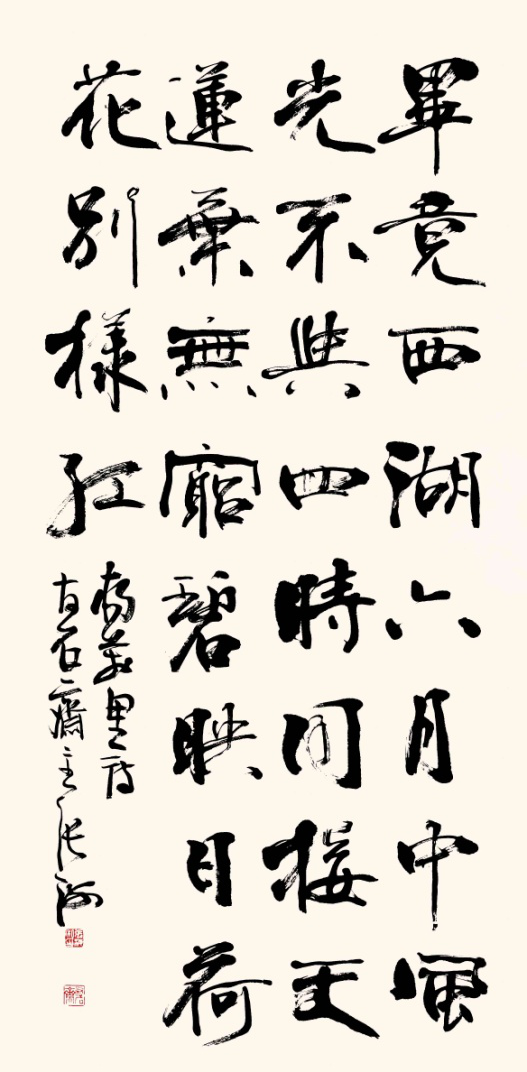 畢竟西湖六月中風
光不與四時同接天
蓮葉無窮碧映日荷
花別樣紅
楊萬里詩
石齋主張